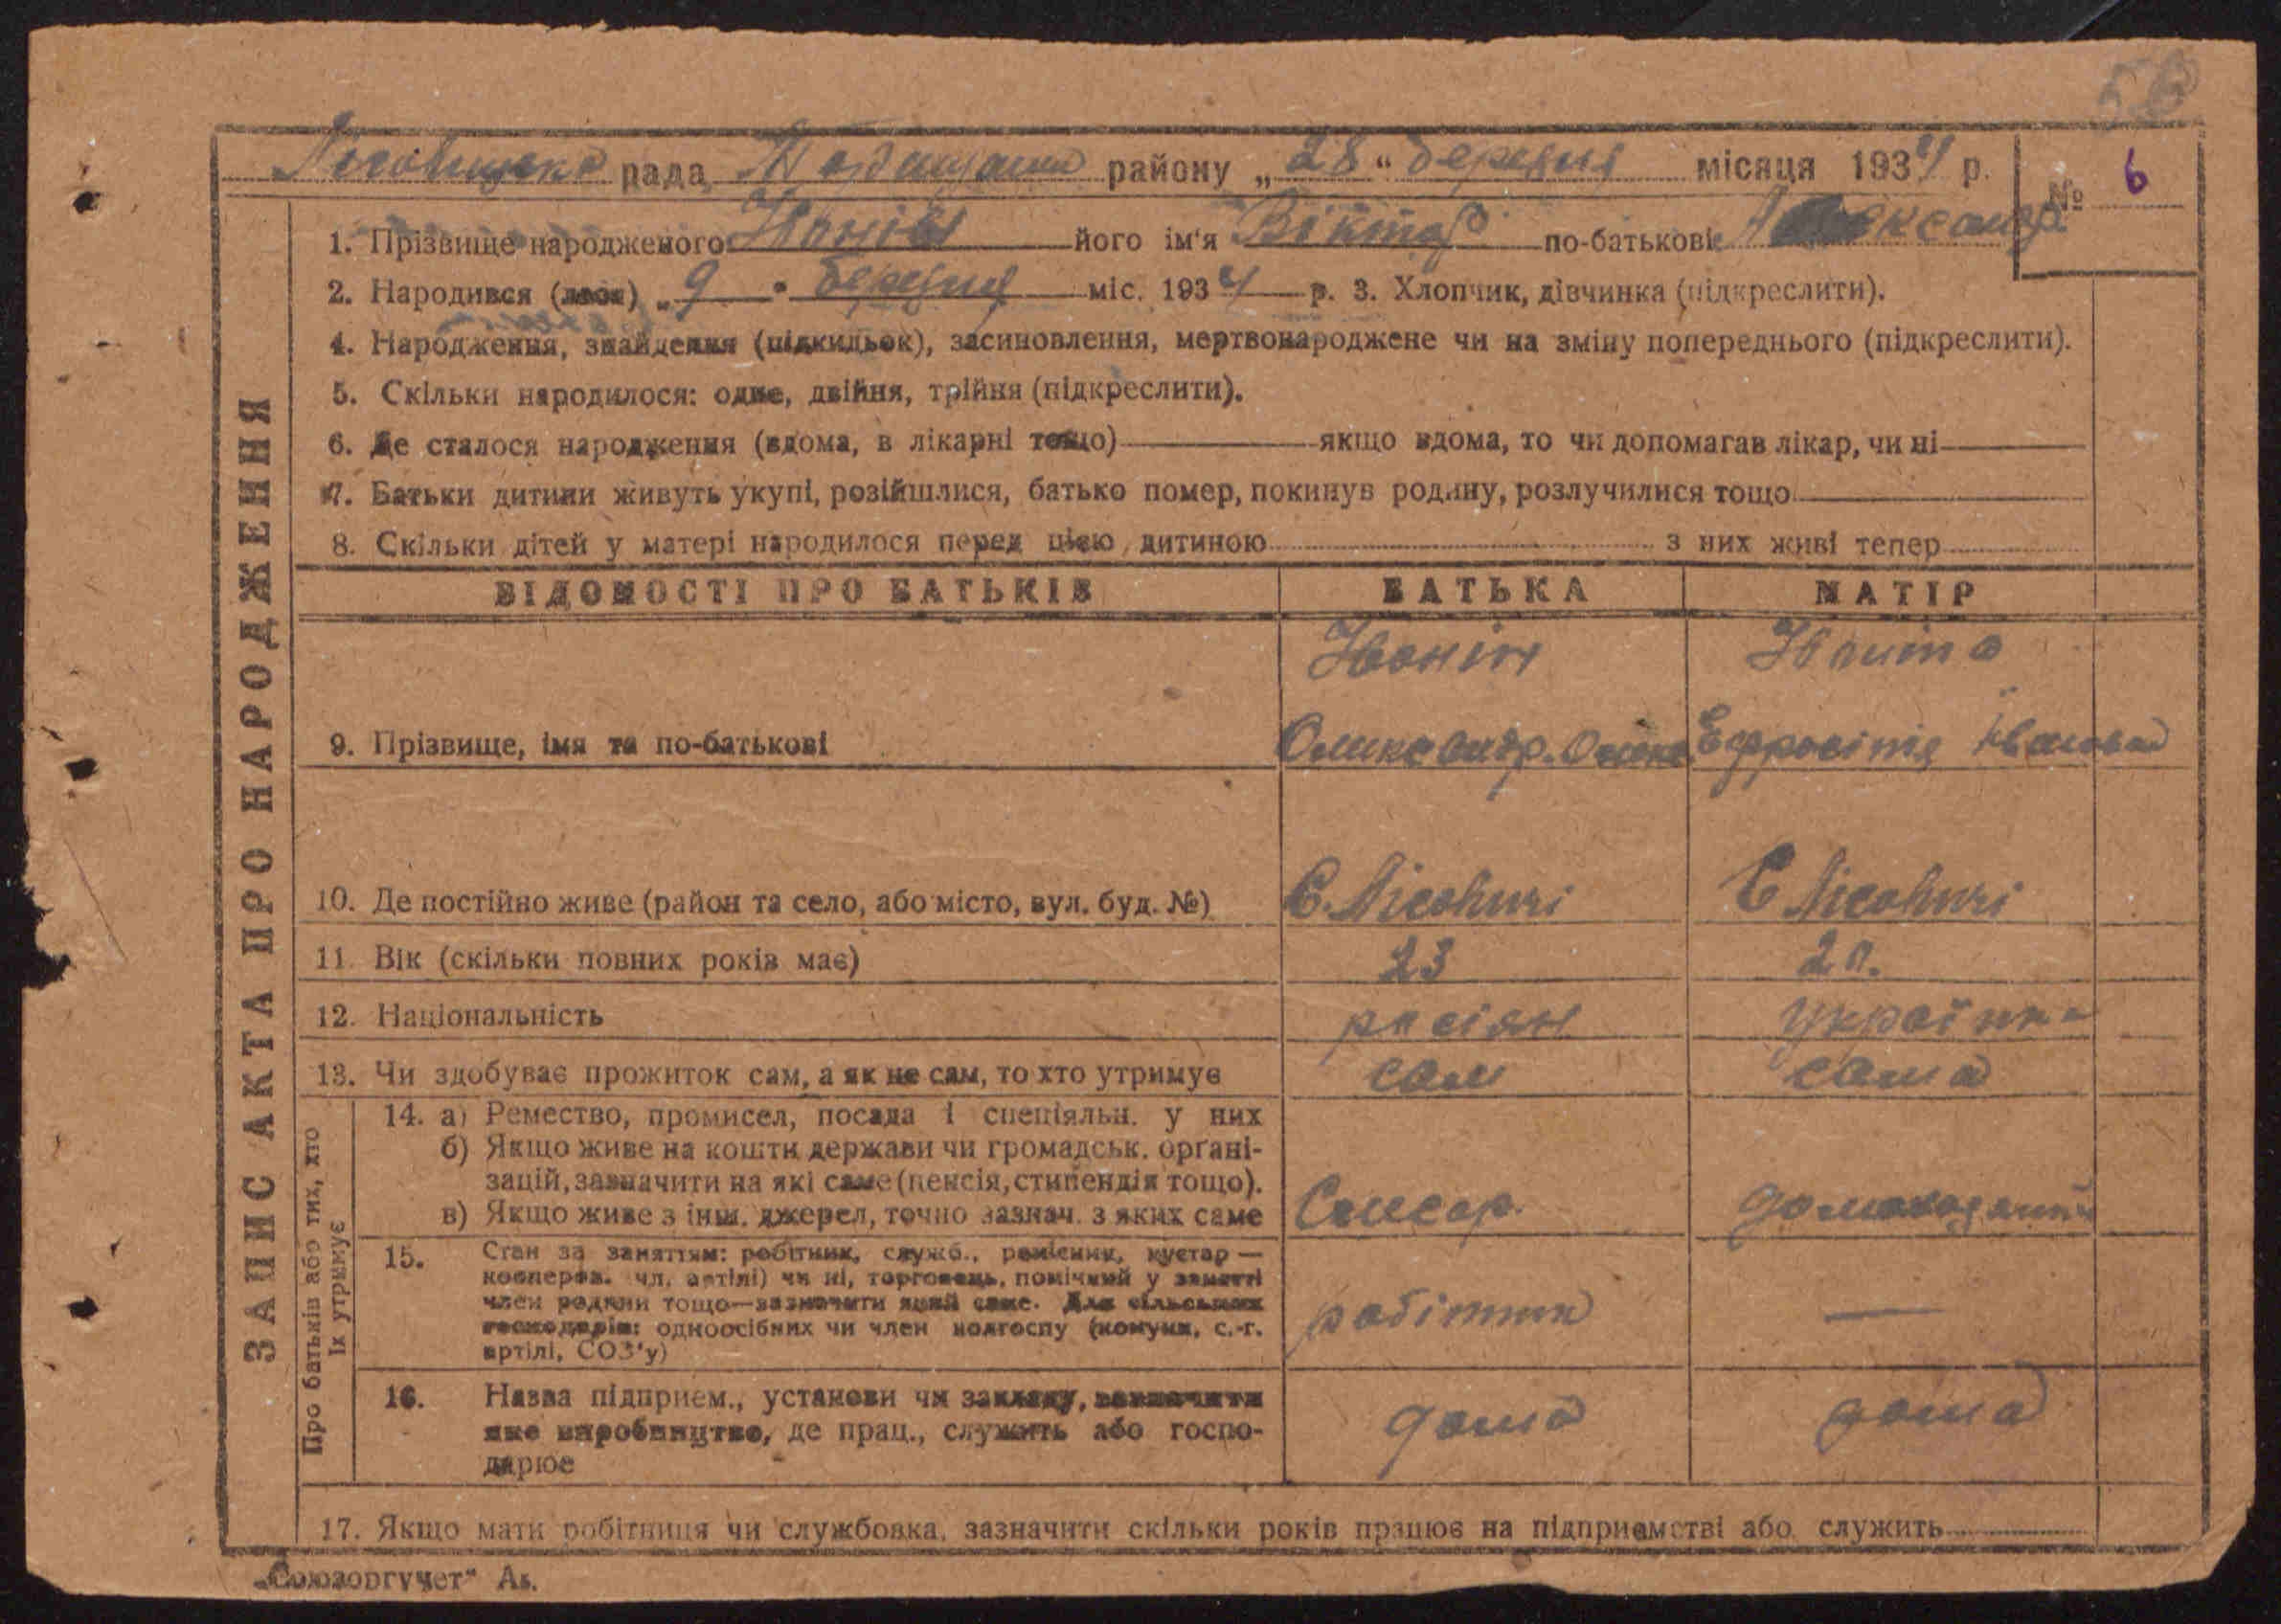 рада району „28“ березня місяця 1934 р. № 6
1. Прізвище народженого Івонін його ім'я Віктор по-батькові
2. Народився (лася) „9 " березня міс. 1934 р. 3. Хлопчик, дівчинка (підкреслити).
4. Народження, знайдення (підкидьок), засиновлення, мертвонароджене чи на зміну попереднього (підкреслити).
5. Скільки народилося: одне, двійня, трійня (підкреслити).
6. Де сталося народження (вдома, в лікарні тощо) якщо вдома, то чи допомагав лікар, чи ні
7. Батьки дитини живуть укупі, розійшлися, батько помер, покинув родину, розлучилися тощо
8. Скільки дітей у матері народилося перед цією дитиною з них живі тепер
ЗАПИС АКТА ПРО НАРОДЖЕННЯ
ВІДОМОСТІ ПРО БАТЬКІВ БАТЬКА МАТІР
Івонін Івоніна
9. Прізвище, імя та по-батькові Олександр. Єфросінія Івановна
10. Де постійно живе (район та село, або місто, вул. буд. №) С. Лісовичі С Лісовичі
11. Вік (скільки повних років має) 23 20.
12. Національність росіян українка
13. Чи здобуває прожиток сам, а як не сам, то хто утримує сам сама
Про батьків або тих, хто
їх утримує
14. а) Ремество, промисел, посада і спеціяльн. у них
б) Якщо живе на кошти держави чи громадськ. орґані-
зацій, зазначити на які саме (пенсія, стипендія тощо).
в) Якщо живе з інш. джерел, точно зазнач. з яких саме Слюсар.
15. Стан за заняттям: робітник, служб., ремісник, кустар —
кооперов. чл. артілі) чи ні, торговець, помічний у занятті
член родини тощо—зазначити який саме. Для сільських
господарів: одноосібних чи член колгоспу (комуни, с.-г.
артілі, СОЗ'у) робітник —
16. Назва підприєм., установи чи закладу, зазначити
яке виробництво, де прац., служить або госпо-
дарює дома дома
17. Якщо мати робітниця чи службовка, зазначити скільки років працює на підприємстві або служить
„Союзоргучет“